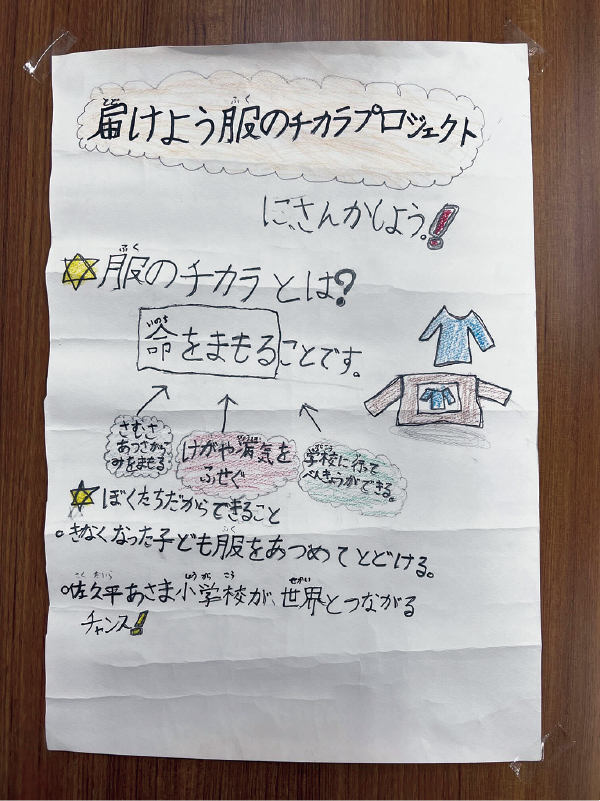 届けよう服のチカラプロジェクト
にさんかしよう。!
服のチカラとは?
命をまもることです。
さむさ
あつさから
みをまもる
けがや病気を
ふせぐ
学校に行って
べんきょうができる。
ぼくたちだからできること
。きなくなった子ども服をあつめてとどける。
。佐久平あさま小学校が、世界とつながる
チャンス!